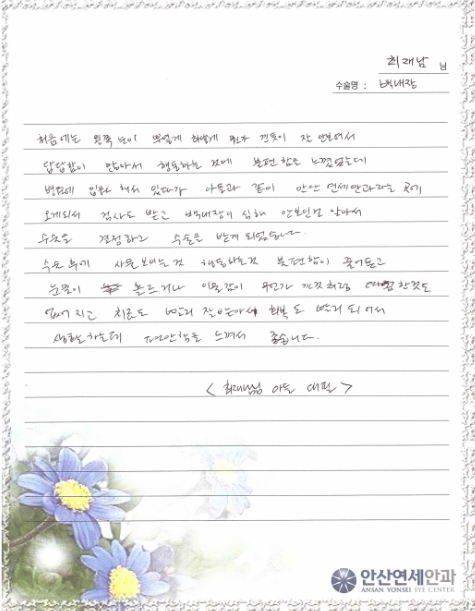 최재남 님
수술명 : 백내장
처음에는 왼쪽 눈이 뿌옇게 하얗게 뭔가 낀듯이 잘 안보여서
답답함이 많아서 행동하는 것에 불편함은 느꼈었는데
병원에 입원 해서 있다가 아들과 같이 안산 연세안과라는 곳에
오게되서 검사도 받고 백내장이 심해 안보인걸 알아서
수술을 결정하고 수술은 받게 되었습니다.
수술 후에 사물보이는것 행동하는것 불편함이 줄어들고
눈물이 흐르거나 이물감이 뭔가 낀것처럼 한것도
없어지고 치료도 받아서 회복도 빨리 되어서
생활하는데 편안함을 느껴서 좋습니다.
< 최재남님 아들 대필 >
안산연세안과
ANSAN YONSEI EYE CENTER